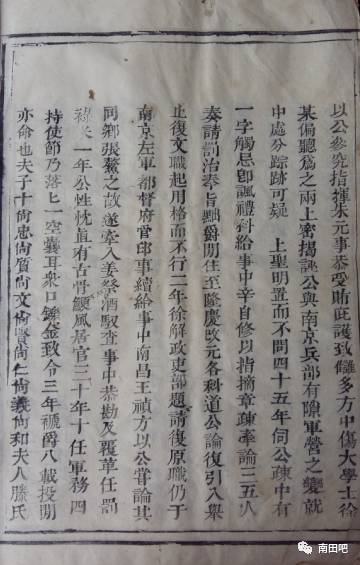 以公參究指揮朱元事恭受賄庇護致讎多方中傷大學士徐
某偏聽爲之兩上密揭誣公與南京兵部有隙軍營之變就
中處分踪跡可疑　上聖明置而不問四十五年伺公疎中有
一字觸忌卽諷禮科給事中辛自修以指摘章疎奉論三五人
奏請罰治奉旨黜爵閒住至隆慶改元各科道公論復引入舉
止復文職起用格而不行二年徐解政吏部題請復原職仍于
南京左軍都督府官印事續給事中南昌王禎方以公嘗論其
同鄉張鰲之故遂牽入姜祭酒馭查事中恭勘及覆革任罰
祿米一年公性忱眞有古骨鯁風居官三十年十任軍務四
持使節乃落匕一空囊耳衆口鑠金致令三年褫爵八載投閒
亦命也夫子十尙忠尙質尙文尙賢尙仁尙義尙和夫人滕氏
南田吧